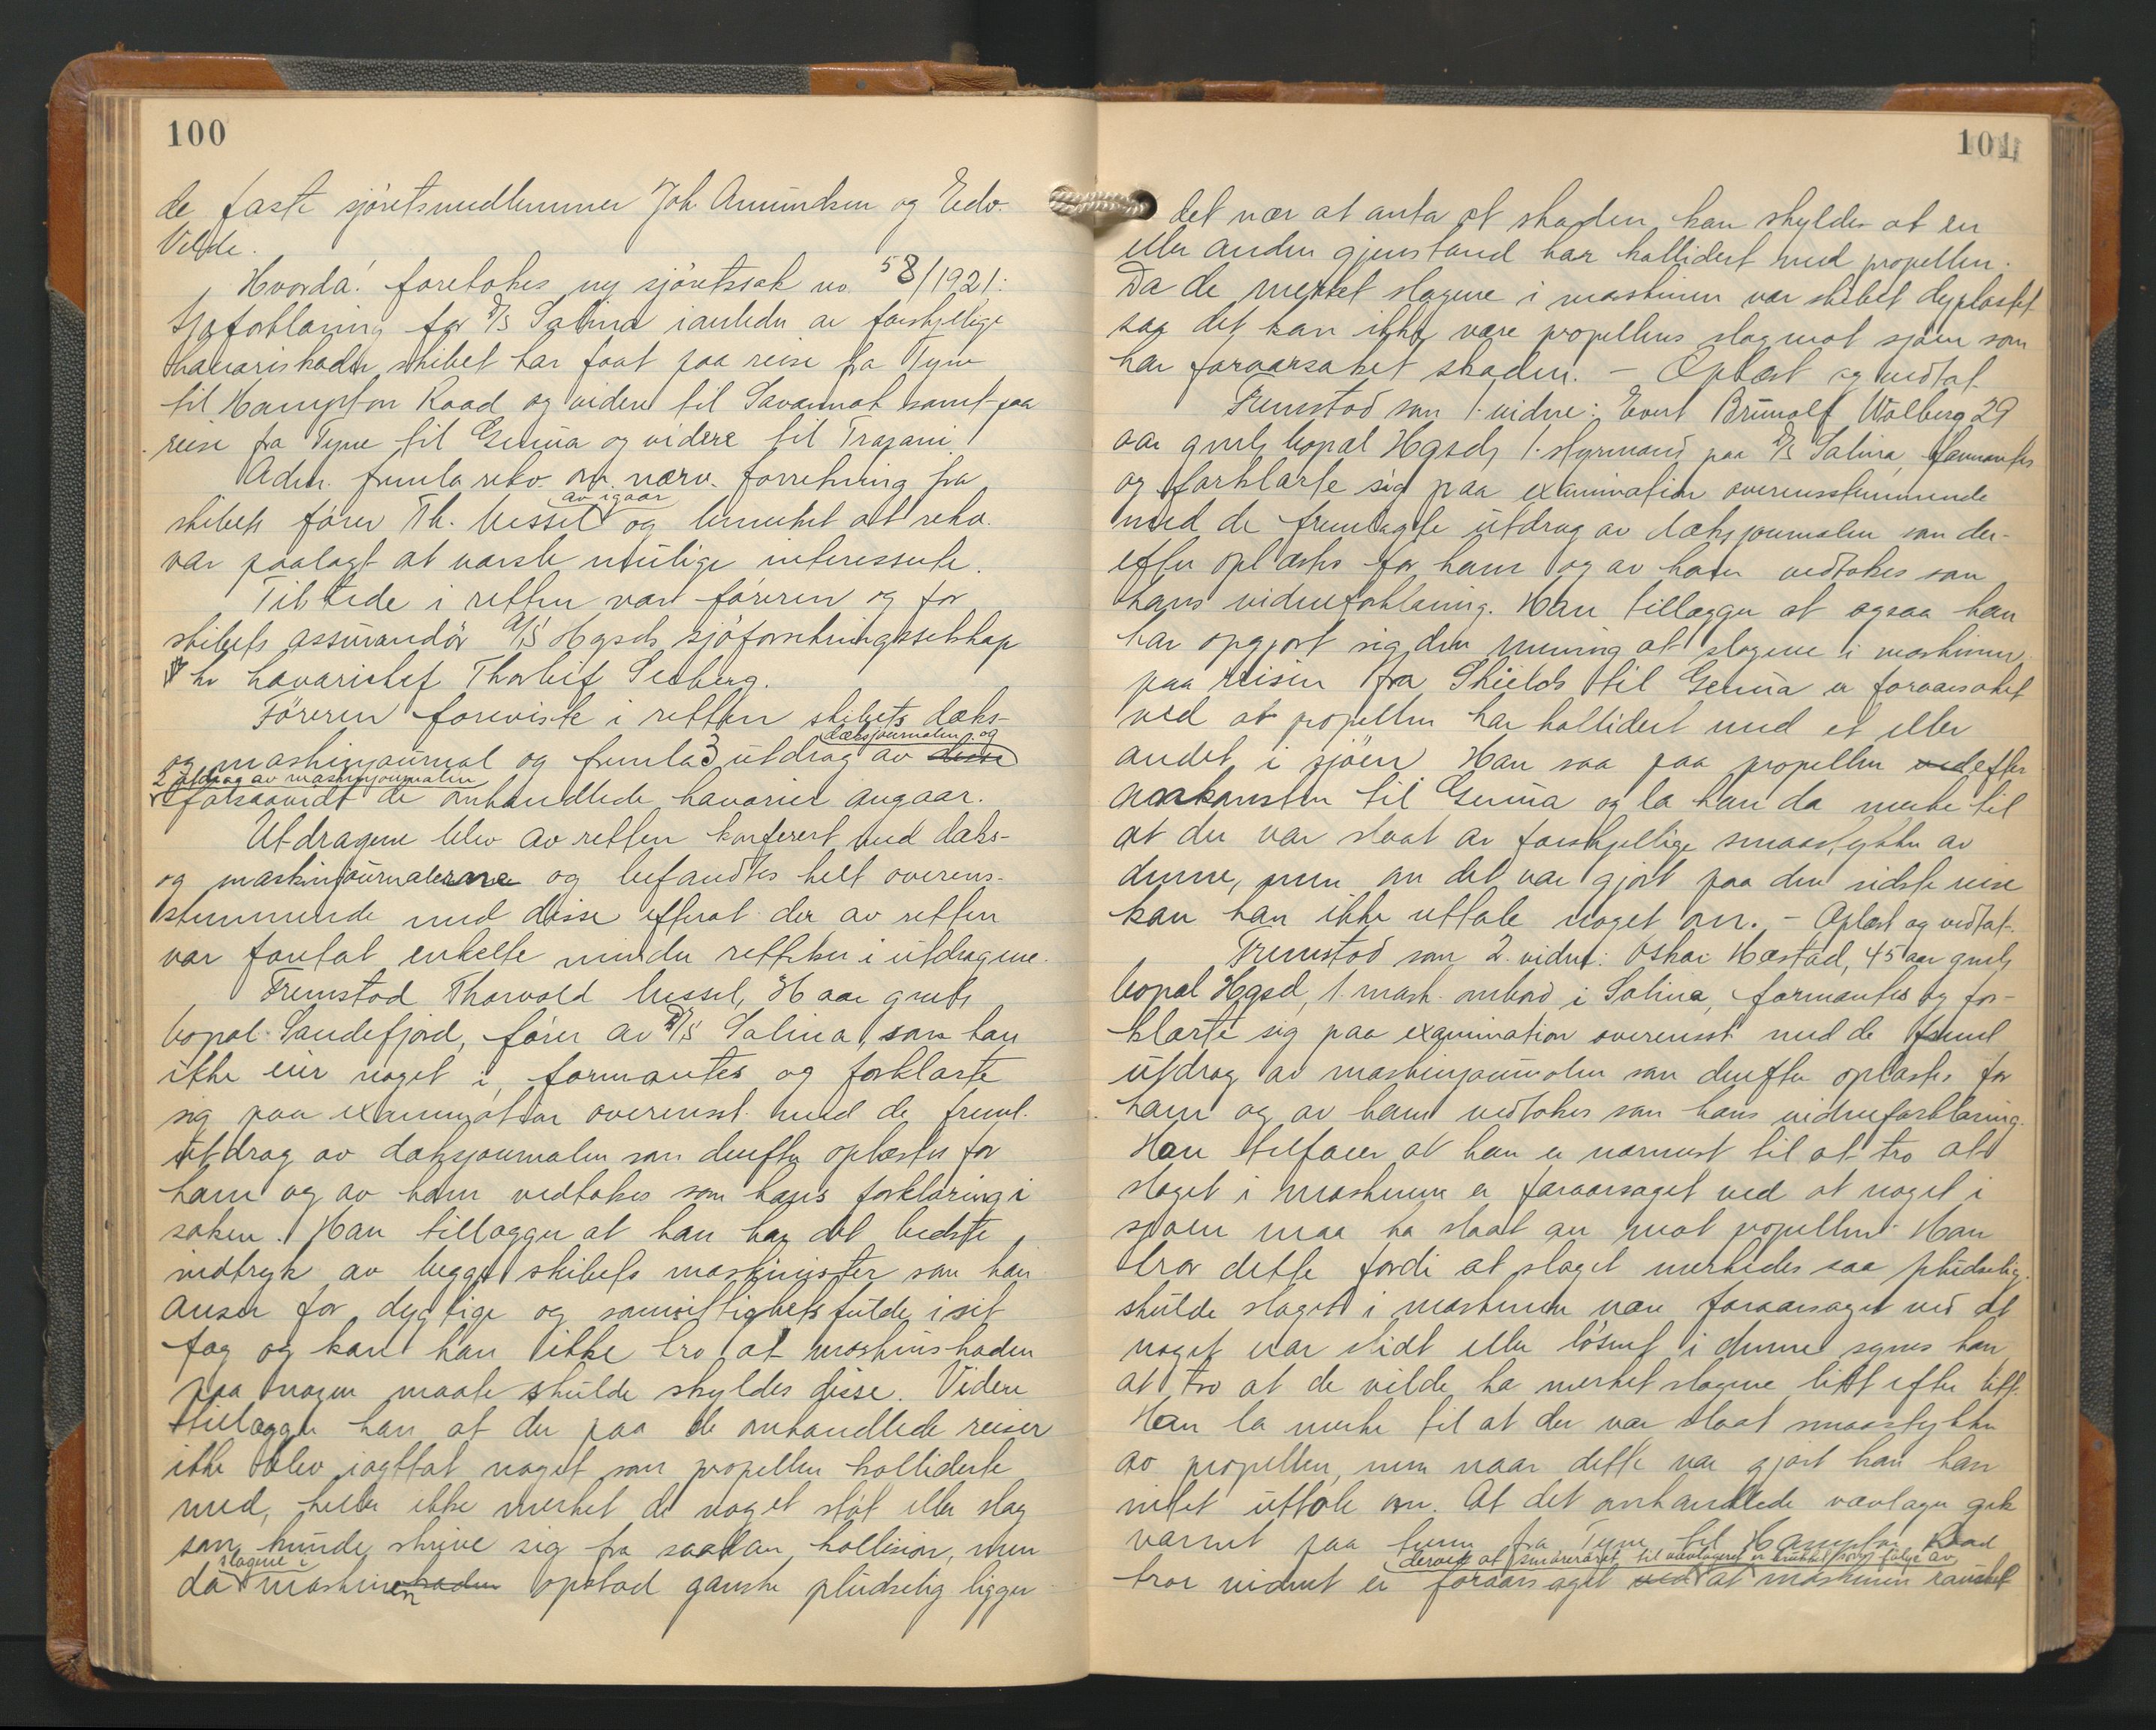 100
de faste sjøretsmedlemmer Joh. Amundsen og Edv.
Velde.
Hvorda: foretokes ny sjøretssak no. 58/1921:
Sjøforklaring for D/S Salina i anledn av forskjellige
havariskader skibet har faat paa reise fra Tyne
til Hampton Road og videre til Savannah samt paa
reise fra Tyne til Genua og videre til Trapani.
Adm. fremla rekv. om nærv. forretning fra
skibets fører Th. Messel av igaar og bemerket at rekv.
var paalagt at varsle mulige interessente.
Tilstede i retten var føreren og for
skibets assurandør A/S Hgsds sjøforsikringsselskap
hr havarichef Thorleif Seeberg.
Føreren foreviste i retten skibets dæks-
og maskinjournal og fremla 3 utdrag av dæksjournalen og
2 utdrag av maskinjournalen
forsaavidt de omhandlede havarier angaar.
Utdragene blev av retten konferert med dæks-
og maskinjournalerne og befandtes helt overens-
stemmende med disse efterat der av retten
var foretat enkelte mindre rettelser i utdragene.
Fremstod Thorvald Messel, aar gml,
bopæl Sandefjord, fører av D/S Salina, som han
ikke eier noget i, formantes og forklarte
sig paa examination overensst. med de freml.
utdrag av dæksjournalen som derefter oplæstes for
ham og av ham vedtokes som hans forklaring i
saken. Han tillægger at han har det bedste
indtryk av begge skibets maskinister som han
anser for dygtige og samvittighetsfulde i sit
fag og kan han ikke tro at maskinskaden
paa nogen maate skulde skyldes disse. Videre
tillægger han at der paa de omhandlede reiser
ikke blev iagttat noget som propellen kolliderte
med, heller ikke merket de noget støt eller slag
som kunde skrive sig fra saadan kollision, men
da slagene i maskinen opstod ganske pludselig ligger
101
det nær at anta at skaden kan skyldes at en
eller anden gjenstand har kollidert med propellen.
Da de merket slagene i maskinen var skibet dyplastet
saa det kan ikke være propellens slag mot sjøen som
har foraarsaket skaden. – Oplæst og vedtat
Fremstod som 1. vidne: Evert Brunolf Wølberg 29
aar gml, bopæl Hgsd, 1. styrmand paa D/S Salina, formantes
og forklarte sig paa examination overensstemmende
med de fremlagte utdrag av dæksjournalen som der-
efter oplæstes for ham og av ham vedtokes som
hans vidneforklaring. Han tillægger at ogsaa han
har opgjort sig den mening at slagene i maskinen
paa reisen fra Shields til Genua er foraarsaket
ved at propellen har kollidert med et eller
andet i sjøen. Han saa paa propellen efter
ankomsten til Genua og la han da merke til
at der var slaat av forskjellige smaastykker av
denne, men om det var gjort paa den sidste reise
kan han ikke uttale noget om. – Oplæst og vedtat.
Fremstod som 2. vidne: Oskar Hæstad, 45 aar gml,
bopæl Hgsd, 1. mask. ombord i Salina, formantes og for-
klarte sig paa examination overensst. med de freml
utdrag av maskinjournalen som derefter oplæstes for
ham og av ham vedtokes som hans vidneforklaring.
Han tilføier at han er nærmest til at tro at
slaget i maskinen er foraarsaget ved at noget i
sjøen maa ha slaat an mot propellen. Han
tror dette fordi at slaget merkedes saa pludselig.
skulde slaget i maskinen være foraarsaget ved at
noget var slidt eller løsnet i denne synes han
at tro at de vilde ha merket slagene litt efter litt.
Han la merke til at der var slaat smaastykker
av propellen, men naar dette var gjort kan han
intet uttale om. At det omhandlede vævlager gik
varmt paa turen fra Tyne til Hampton Road
tror vidnet er foraarsaget derved at smørerøret til vævlageret er brukket som følge av at maskinen rauset